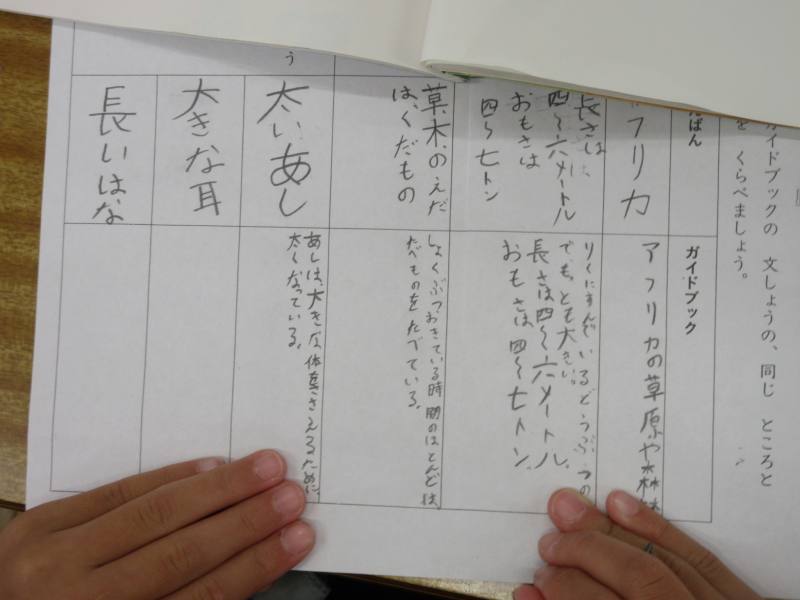 ガイドブックの 文しょうの、同じ ところと
を くらべましょう。
んばん
ガイドブック
フリカ
アフリカの草原や森林
長さは
四〜六メートル
おもさは
四〜七トン
りくにすんでいるどうぶつの
でもっとも大きい。
長さは四〜六メートル、
おもさは四〜七トン、
草木のえだ
は、くだもの
しょくぶつおきている時間のほとんどは、
たべものをたべている。
う
太いあし
あしは、大きな体をささえるために、
太くなっている。
大きな耳
長いはな